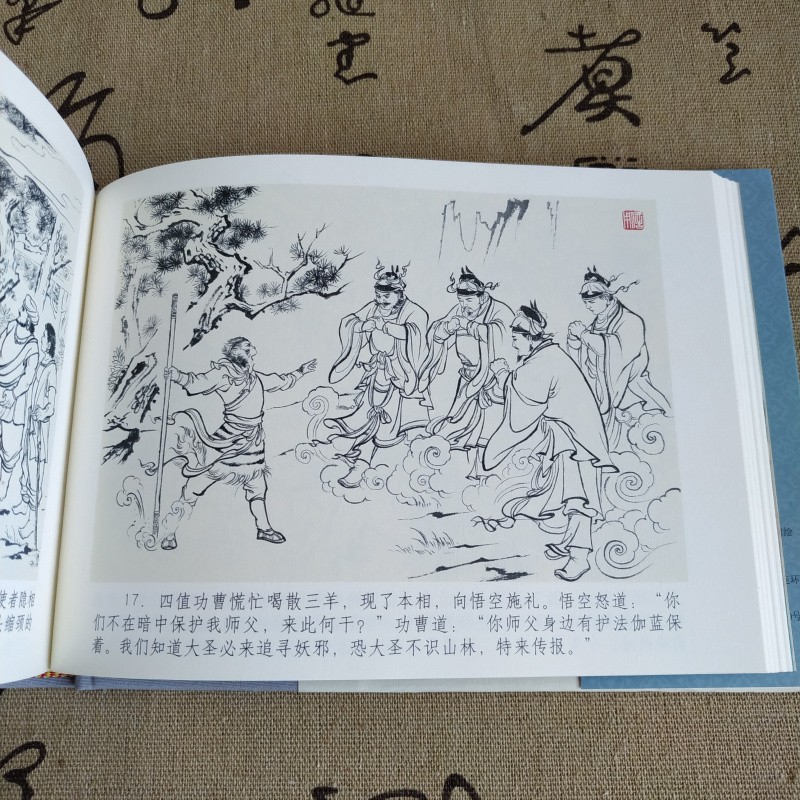 使者隐相
缩颈的
17. 四值功曹慌忙喝散三羊，现了本相，向悟空施礼。悟空怒道：“你
们不在暗中保护我师父，来此何干？”功曹道：“你师父身边有护法伽蓝保
着。我们知道大圣必来追寻妖邪，恐大圣不识山林，特来传报。”
绘
环